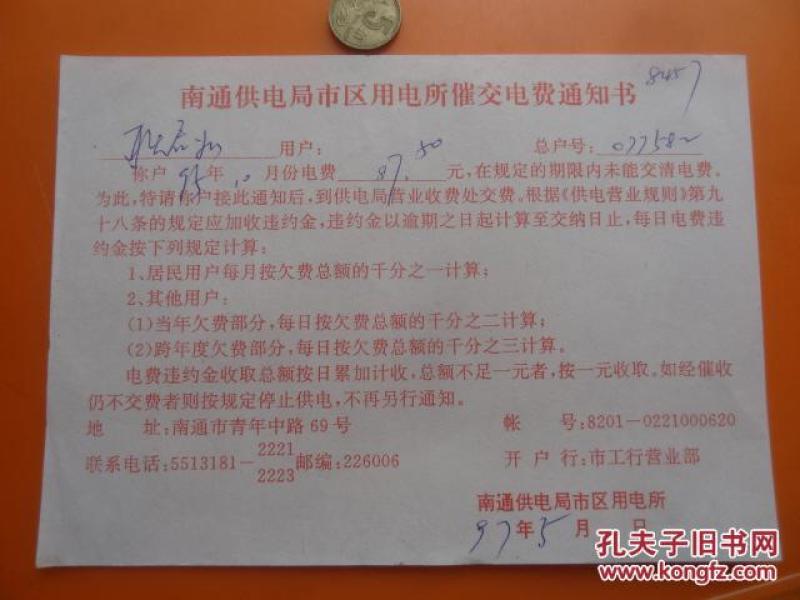 8457
南通供电局市区用电所催交电费通知书
用户: 总户号: 077582
你户95年10月份电费87.50元,在规定的期限内未能交清电费。
为此,特请你户接此通知后,到供电局营业收费处交费。根据《供电营业规则》第九
十八条的规定应加收违约金,违约金以逾期之日起计算至交纳日止,每日电费违
约金按下列规定计算:
1、居民用户每月按欠费总额的千分之一计算;
2、其他用户:
(1)当年欠费部分,每日按欠费总额的千分之二计算;
(2)跨年度欠费部分,每日按欠费总额的千分之三计算。
电费违约金收取总额按日累加计收,总额不足一元者,按一元收取。如经催收
仍不交费者则按规定停止供电,不再另行通知。
地 址:南通市青年中路69号 帐 号:8201-0221000620
联系电话:5513181-2221/2223 邮编:226006 开户行:市工行营业部
南通供电局市区用电所
97年5月 日
孔夫子旧书网
www.kongfz.com